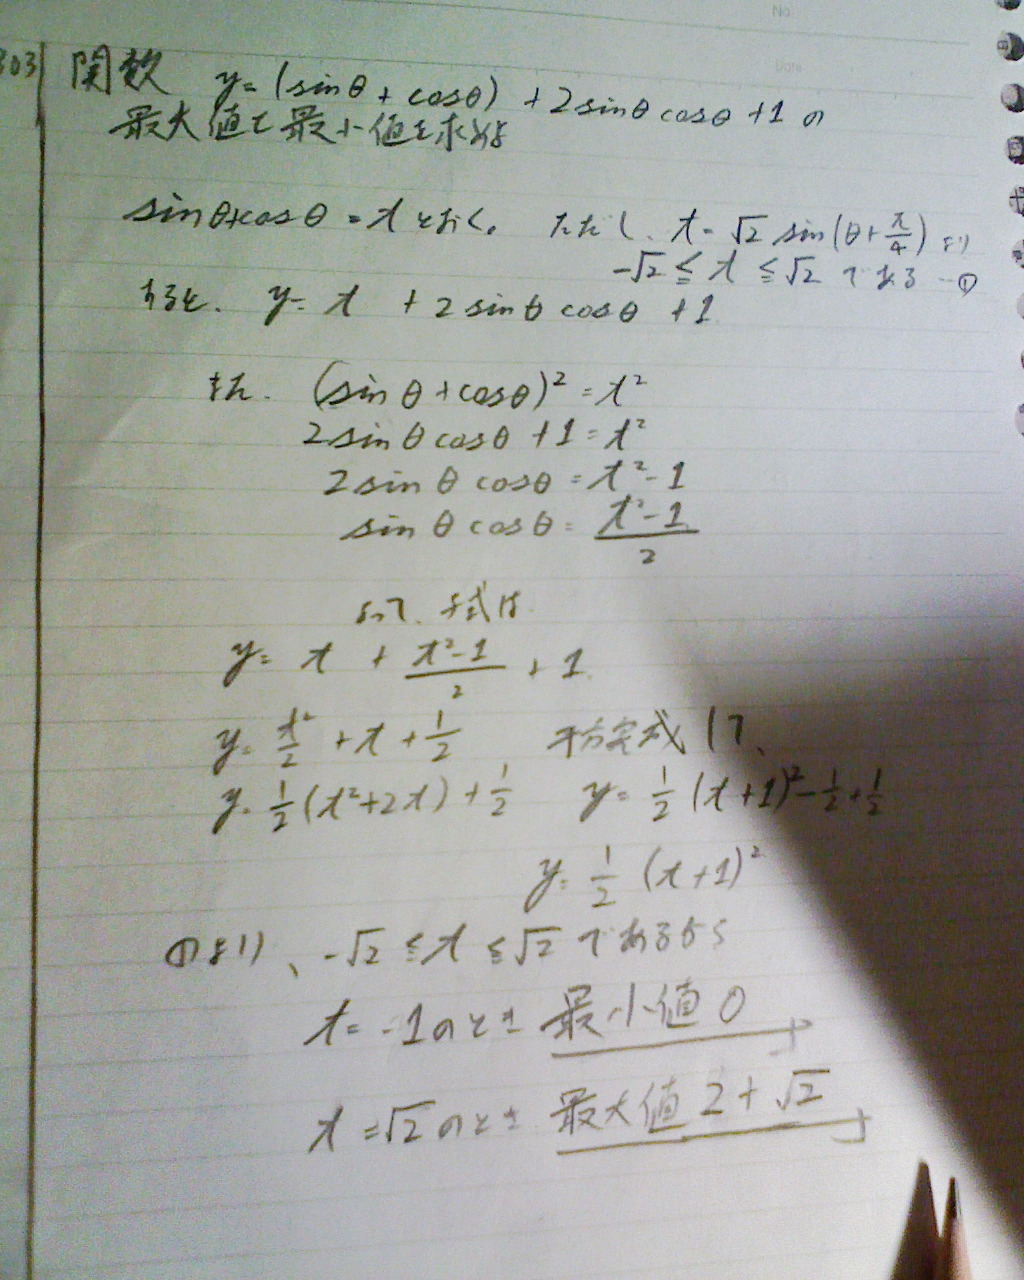 No.
Date
303 関数 y=(sinθ+cosθ)+2sinθcosθ+1の
最大値と最小値を求めよ
sinθ+cosθ=tとおく。ただし、t=√2 sin(θ+π/4)より
-√2≦t≦√2である-①
すると、y=t+2sinθcosθ+1
また、(sinθ+cosθ)²=t²
2sinθcosθ+1=t²
2sinθcosθ=t²-1
sinθcosθ=(t²-1)/2
よって、与式は
y=t+(t²-1)/2+1
y=t²/2+t+1/2 平方完成して、
y=1/2(t²+2t)+1/2 y=1/2(t+1)²-1/2+1/2
y=1/2(t+1)²
①より、-√2≦t≦√2であるから
t=-1のとき 最小値0
t=√2のとき 最大値2+√2